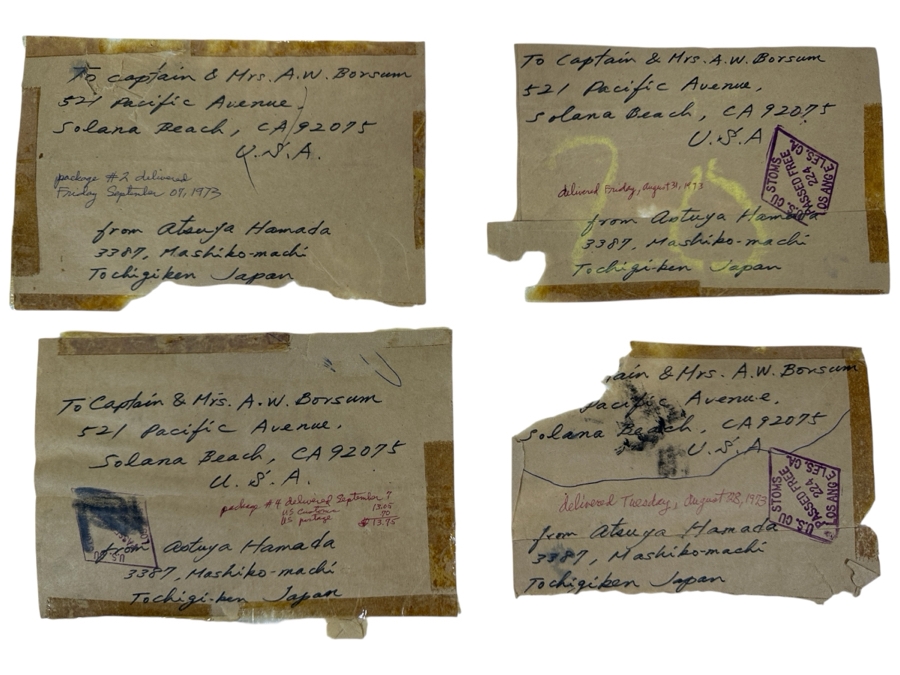 To Captain & Mrs. A.W. Borsum
521 Pacific Avenue,
Solana Beach, CA 92075
U.S.A.
package #2 delivered
Friday September 07, 1973
from Atsuya Hamada
3387, Mashiko-machi
Tochigiken Japan
To Captain & Mrs. A.W. Borsum
521 Pacific Avenue,
Solana Beach, CA 92075
U.S.A
U.S. CUSTOMS
PASSED FREE
224
LOS ANGELES, CA.
delivered Friday, August 31, 1973
from Astuya Hamada
3387, Mashiko-machi
Tochigi-ken Japan
To Captain & Mrs. A.W. Borsum
521 Pacific Avenue,
Solana Beach, CA 92075
U.S.A.
package #4 delivered September 7
US Customs 13.05
US postage 70
$13.75
U.S.
from Astuya Hamada
3387, Mashiko-machi
Tochigi-ken Japan
tain & Mrs. A.W. Borsum
Pacific Avenue,
Solana Beach, CA 92075
U.S.A
U.S. CUSTOMS
PASSED FREE
224
LOS ANGELES, CA.
delivered Tuesday, August 28, 1973
from Atsuya Hamada
3387, Mashiko-machi
Tochigiken Japan